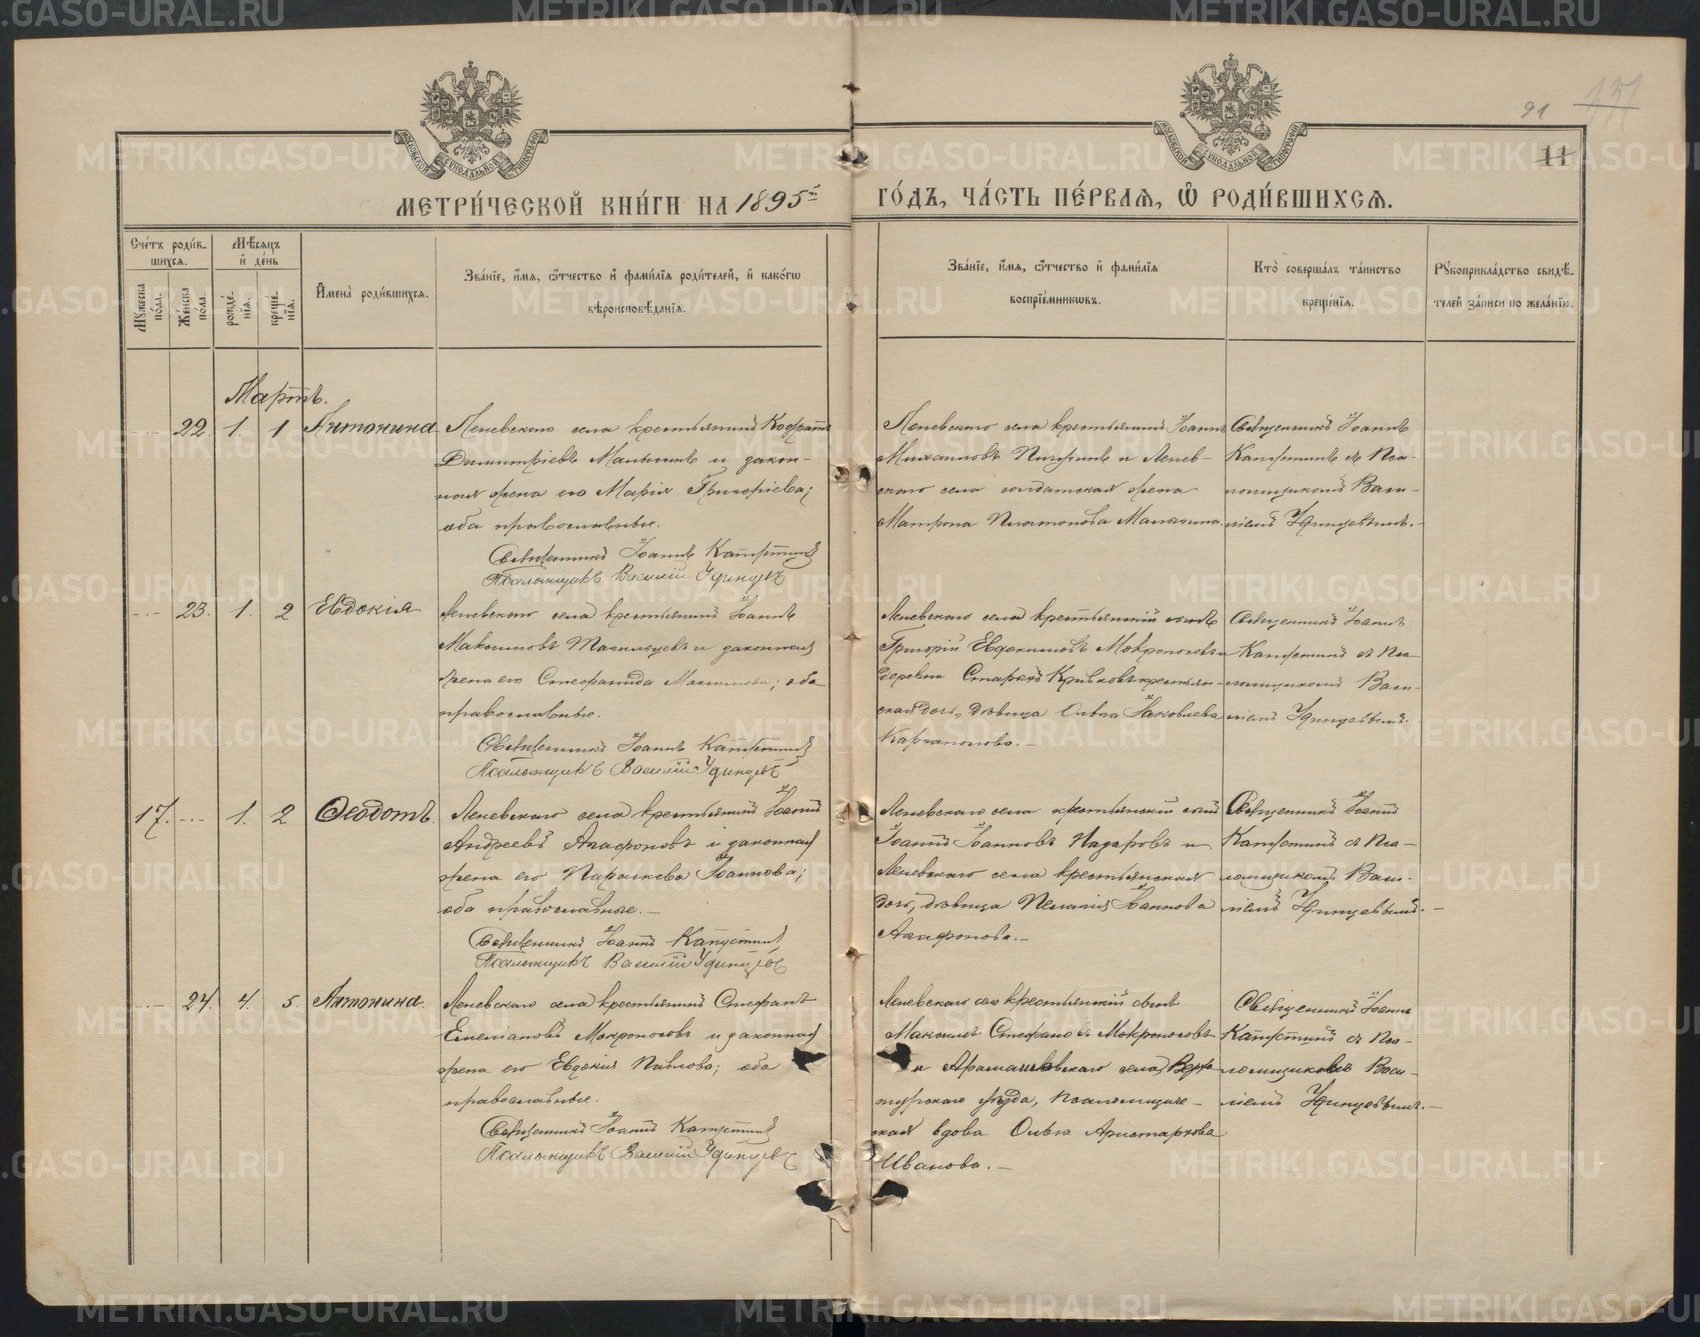 91
11
МОСКОВСКОЙ СѴНОДАЛЬНОЙ ТИПОГРАФІИ
МОСКОВСКОЙ СѴНОДАЛЬНОЙ ТИПОГРАФІИ
МЕТРИ́ЧЕСКОЙ КНИ́ГИ НА 1895й ГО́ДЪ, ЧА́СТЬ ПЕ́РВАѦ, Ѽ РОДИ́ВШИХСѦ.
Сче́тъ роди́в-
шихсѧ.
Мѣ́сѧцъ
и҆ де́нь
Мꙋ́жеска
по́ла.
Же́нска
по́ла.
рожде́-
нїѧ.
креще́-
нїѧ.
И҆мена̀ роди́вшихсѧ.
Зва́нїе, и҆́мѧ, ѻ҆́тчество и҆ фами́лїѧ роди́телей, и҆ како́гѡ
вѣроисповѣ́данїѧ.
Зва́нїе, и҆́мѧ, ѻ҆́тчество и҆ фами́лїѧ
воспрїе́мникѡвъ.
Кто̀ соверша́лъ та́инство
креще́нїѧ.
Рꙋкоприкла́дство свидѣ́-
телей за́писи по жела́нїю.
Мартъ.
22 1. 1 Антонина
Леневского села крестьянинъ Кодратъ
Димитріевъ Малыгинъ и закон-
ная жена его Марія Григоріева;
оба православные.
Священникъ Іоаннъ Капустинъ
Псаломщикъ Василій Удинцевъ
Леневского села крестьянинъ Іоаннъ
Михаиловъ и Ленев-
ского села солдатская жена
Матрона Платонова Малыгина.
Священникъ Іоаннъ
Капустинъ съ Пса-
ломщикомъ Васи-
ліемъ Удинцевымъ.
23. 1. 2 Евдокія
Леневского села крестьянинъ Іоаннъ
Максимовъ Тагильцевъ и законная
жена его Стефанида Максимова; оба
православные.
Священникъ Іоаннъ Капустинъ
Псаломщикъ Василій Удинцевъ
Леневского села крестьянскій сынъ
Григорій Евдокимовъ Мокроносовъ и
деревни Старыхъ Кривковъ крестьян-
ская дочь, дѣвица Ольга Іаковлева
Каргаполова.—
Священникъ Іоаннъ
Капустинъ съ Пса-
ломщикомъ Васи-
ліемъ Удинцевымъ.
17. 1. 2 Ѳеодотъ.
Леневского села крестьянинъ Іоаннъ
Андреевъ Агафоновъ и законная
жена его Параскева Іоаннова;
оба православные.—
Священникъ Іоаннъ Капустинъ
Псаломщикъ Василій Удинцевъ
Леневского села крестьянскій сынъ
Іоаннъ Іоанновъ Назаровъ и
Леневского села крестьянская
дочь, дѣвица Пелагія Іоаннова
Агафонова.—
Священникъ Іоаннъ
Капустинъ съ Пса-
ломщикомъ Васи-
ліемъ Удинцевымъ.—
24. 4. 5. Антонина.
Леневского села крестьянинъ Стефанъ
Емеліановъ Мокроносовъ и законная
жена его Евдокія Павлова; оба
православные.
Священникъ Іоаннъ Капустинъ
Псаломщикъ Василій Удинцевъ
Леневского села крестьянскій сынъ
Максимъ Стефановъ Мокроносовъ
и Арамашевского села, Верхо-
турского уѣзда, Псаломщиче-
ская вдова Ольга Аристархова
Иванова.—
Священникъ Іоаннъ
Капустинъ съ Пса-
ломщикомъ Васи-
ліемъ Удинцевымъ.—
METRIKI.GASO-URAL.RU